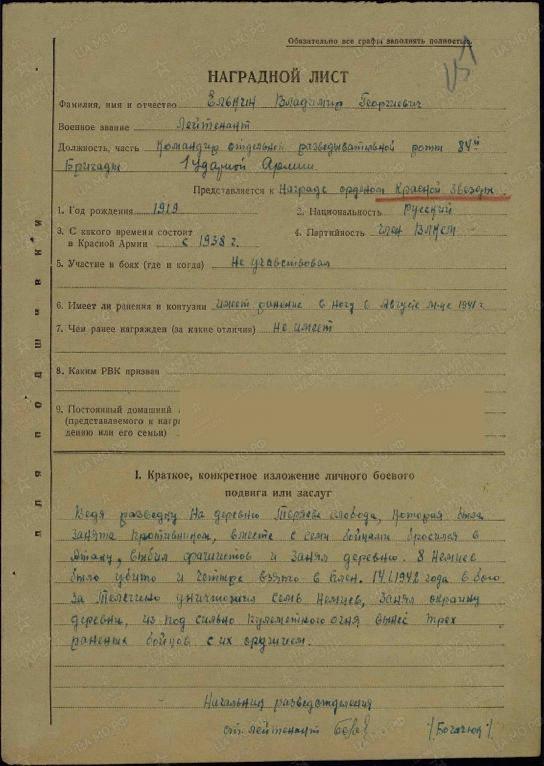 Обязательно все графы заполнять полностью
НАГРАДНОЙ ЛИСТ
Фамилия, имя и отчество Елькин Владимир Георгиевич
Военное звание Лейтенант
Должность, часть Командир отдельной разведывательной роты 84й
Бригады 1 Ударной Армии
Представляется к Награде орденом Красной Звезды.
1. Год рождения 1919 2. Национальность Русский
3. С какого времени состоит
в Красной Армии с 1938 г. 4. Партийность член ВЛКСМ
5. Участие в боях (где и когда) Не учавствовал
6. Имеет ли ранения и контузии имеет ранение в ногу в Августе м-це 1941 г
7. Чем ранее награжден (за какие отличия) Не имеет
8. Каким РВК призван
9. Постоянный домашний
(представляемого к
дению или его семьи)
для подшивки
I. Краткое, конкретное изложение личного боевого
подвига или заслуг
Ведя разведку на деревню Теряева слобода, которая была
занята противником, вместе с семи бойцами бросился в
Атаку, выбил фашистов и занял деревню. 8 Немцев
было убито и четыре взято в плен. 14/I.1942 года в бою
за Телегино уничтожил семь Немцев, занял окраину
деревни, из под сильно пулеметного огня вынес трех
раненых бойцов с их оружием.
Начальник разведотделения
ст. лейтенант /Богачюк/